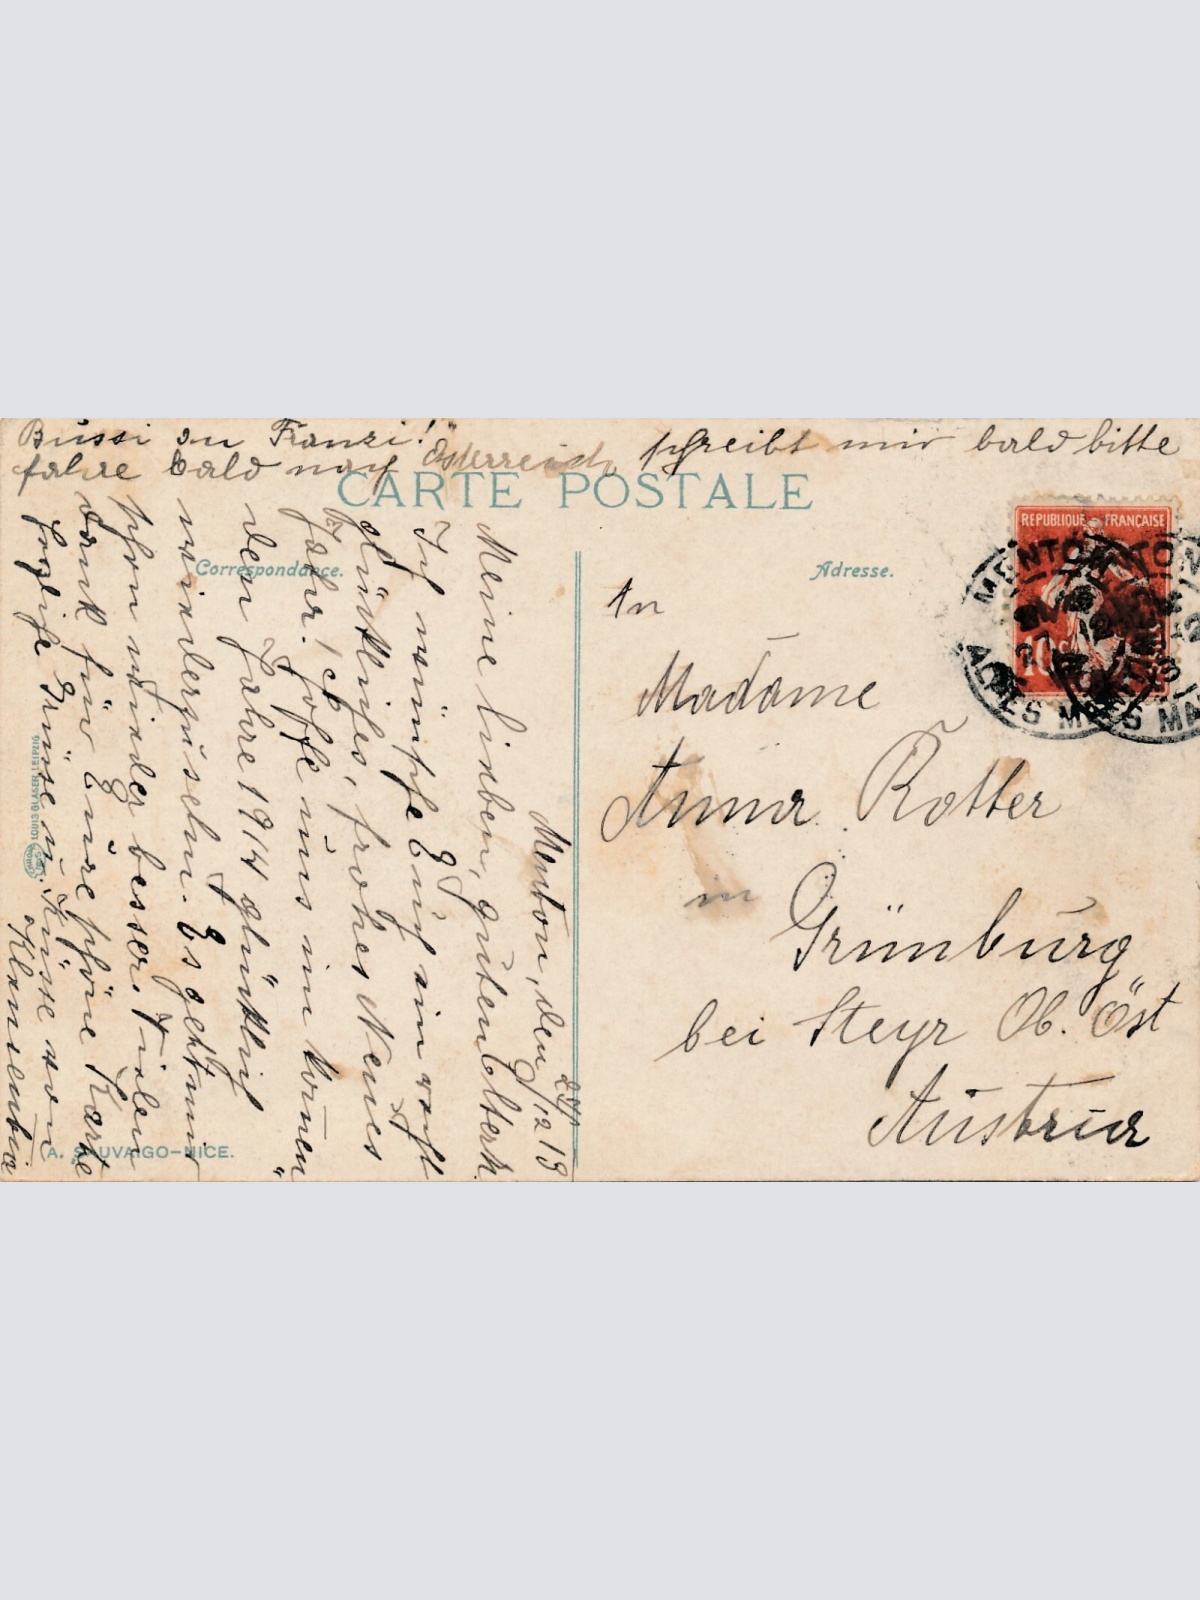 Bussi an Franzi! schreibt mir bald bitte
fahre bald nach Österreich
CARTE POSTALE
Correspondance.
Adresse.
REPUBLIQUE FRANÇAISE
10c
MENTON
ALPES MARITIMES
Menton, den 27/12 13
Meine lieben, guten Eltern
Ich wünsche Euch ein recht
glückliches, frohes Neues
Jahr! Ich hoffe uns im
den Jahre 1914 glücklich
wiederzusehn. Es geht mir
schon wieder besser. Vielen
Dank für Eure schöne Karte
herzliche Grüsse u. Küsse von
Klementin
An
Madame
Anna Rotter
in Grünburg
bei Steyr Ob. Öst
Austria
LOUIS GLASER, LEIPZIG
A. SAUVAIGO-NICE.